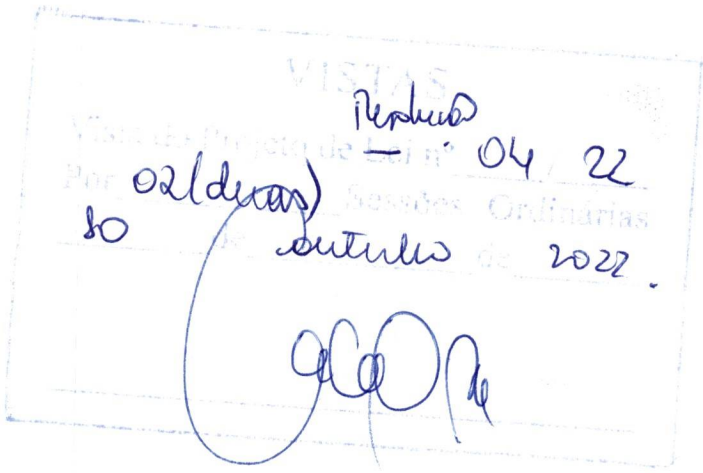 VISTAS
Resolução
Vista do Projeto de Lei nº 04 22
Por 02 (duas) Sessões Ordinárias
10 de outubro de 2022.